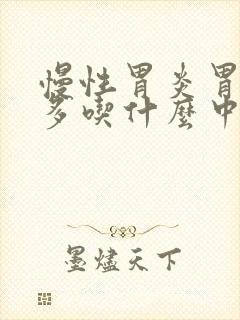 慢性胃炎胃
多喫什麼中
墨燼天下